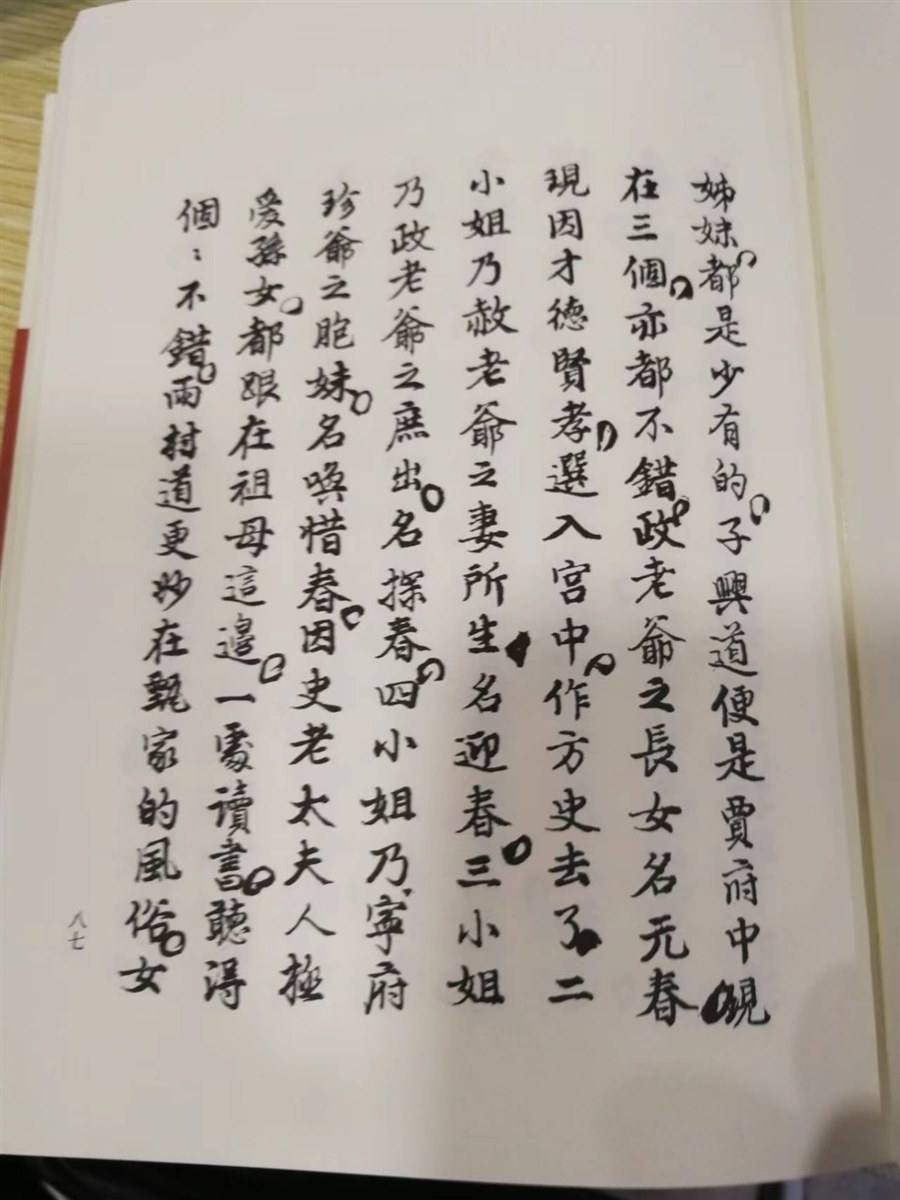 姊妹都是少有的子興道便是賈府中現
在三個亦都不錯政老爺之長女名元春
現因才德賢孝選入宮中作方史去了二
小姐乃赦老爺之妻所生名迎春三小姐
乃政老爺之庶出名探春四小姐乃寧府
珍爺之胞妹名喚惜春因史老太夫人極
愛孫女都跟在祖母這邊一處讀書聽得
個：不錯雨村道更妙在甄家的風俗女
八七